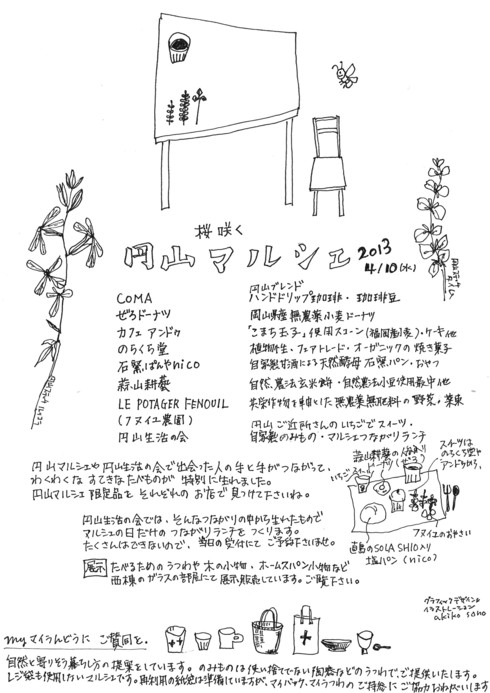 桜咲く
円山マルシェ 2013 4/10(水)
COMA 円山ブレンド
ハンドドリップ珈琲・珈琲豆
ぜろドーナツ 岡山県産無農薬小麦ドーナツ
カフェ アンドゥ 「こまち玉子」使用スコーン(福岡)・ケーキ他
のらくら堂 植物性・フェアトレード・オーガニックの焼き菓子
石窯ぱんやnico 天然酵母 石窯パン・おやつ
蒜山耕藝 自然農法玄米・自然農法小豆使用最中他
LE POTAGER FENOUIL
(フヌイエ農園) 無農薬無肥料の野菜・果東
円山生活の会 円山ご近所さんのいちごでスイーツ、
自家製のみもの・マルシェつながりランチ
円山マルシェや円山生活の会で出会った人の手と手がつながって、
わくわくな すてきなたべものが 特別に生れました。
円山マルシェ限定品を それぞれの お店で見つけて下さいね。
円山生活の会では、そんなつながりの中から生れたもので
マルシェの日だけの つながりランチをつくります。
たくさんはできないので、当日の受付にて ご予約下さいませ。
展示 たべるための うつわや 木の小物、ホームスパン小物など
西棟のガラスの部屋にて展示販売しています。ご覧下さい。
スイーツは
のらくら堂や
アンドゥから。
フヌイエのおやさい
直島のSOLA SHIO入り
塩パン (nico)
グラフィックデザイン&
イラストレーション
akiko sano
myマイうんどうに ご賛同を。
自然と寄りそう暮らし方の提案をしています。のみものは使い捨てでない陶器などのうつわで、ご提供いたします。
レジ袋も使用しないマルシェです。再利用の紙袋は準備していますが、マイバック、マイうつわの ご持参に ご協力おねがいします